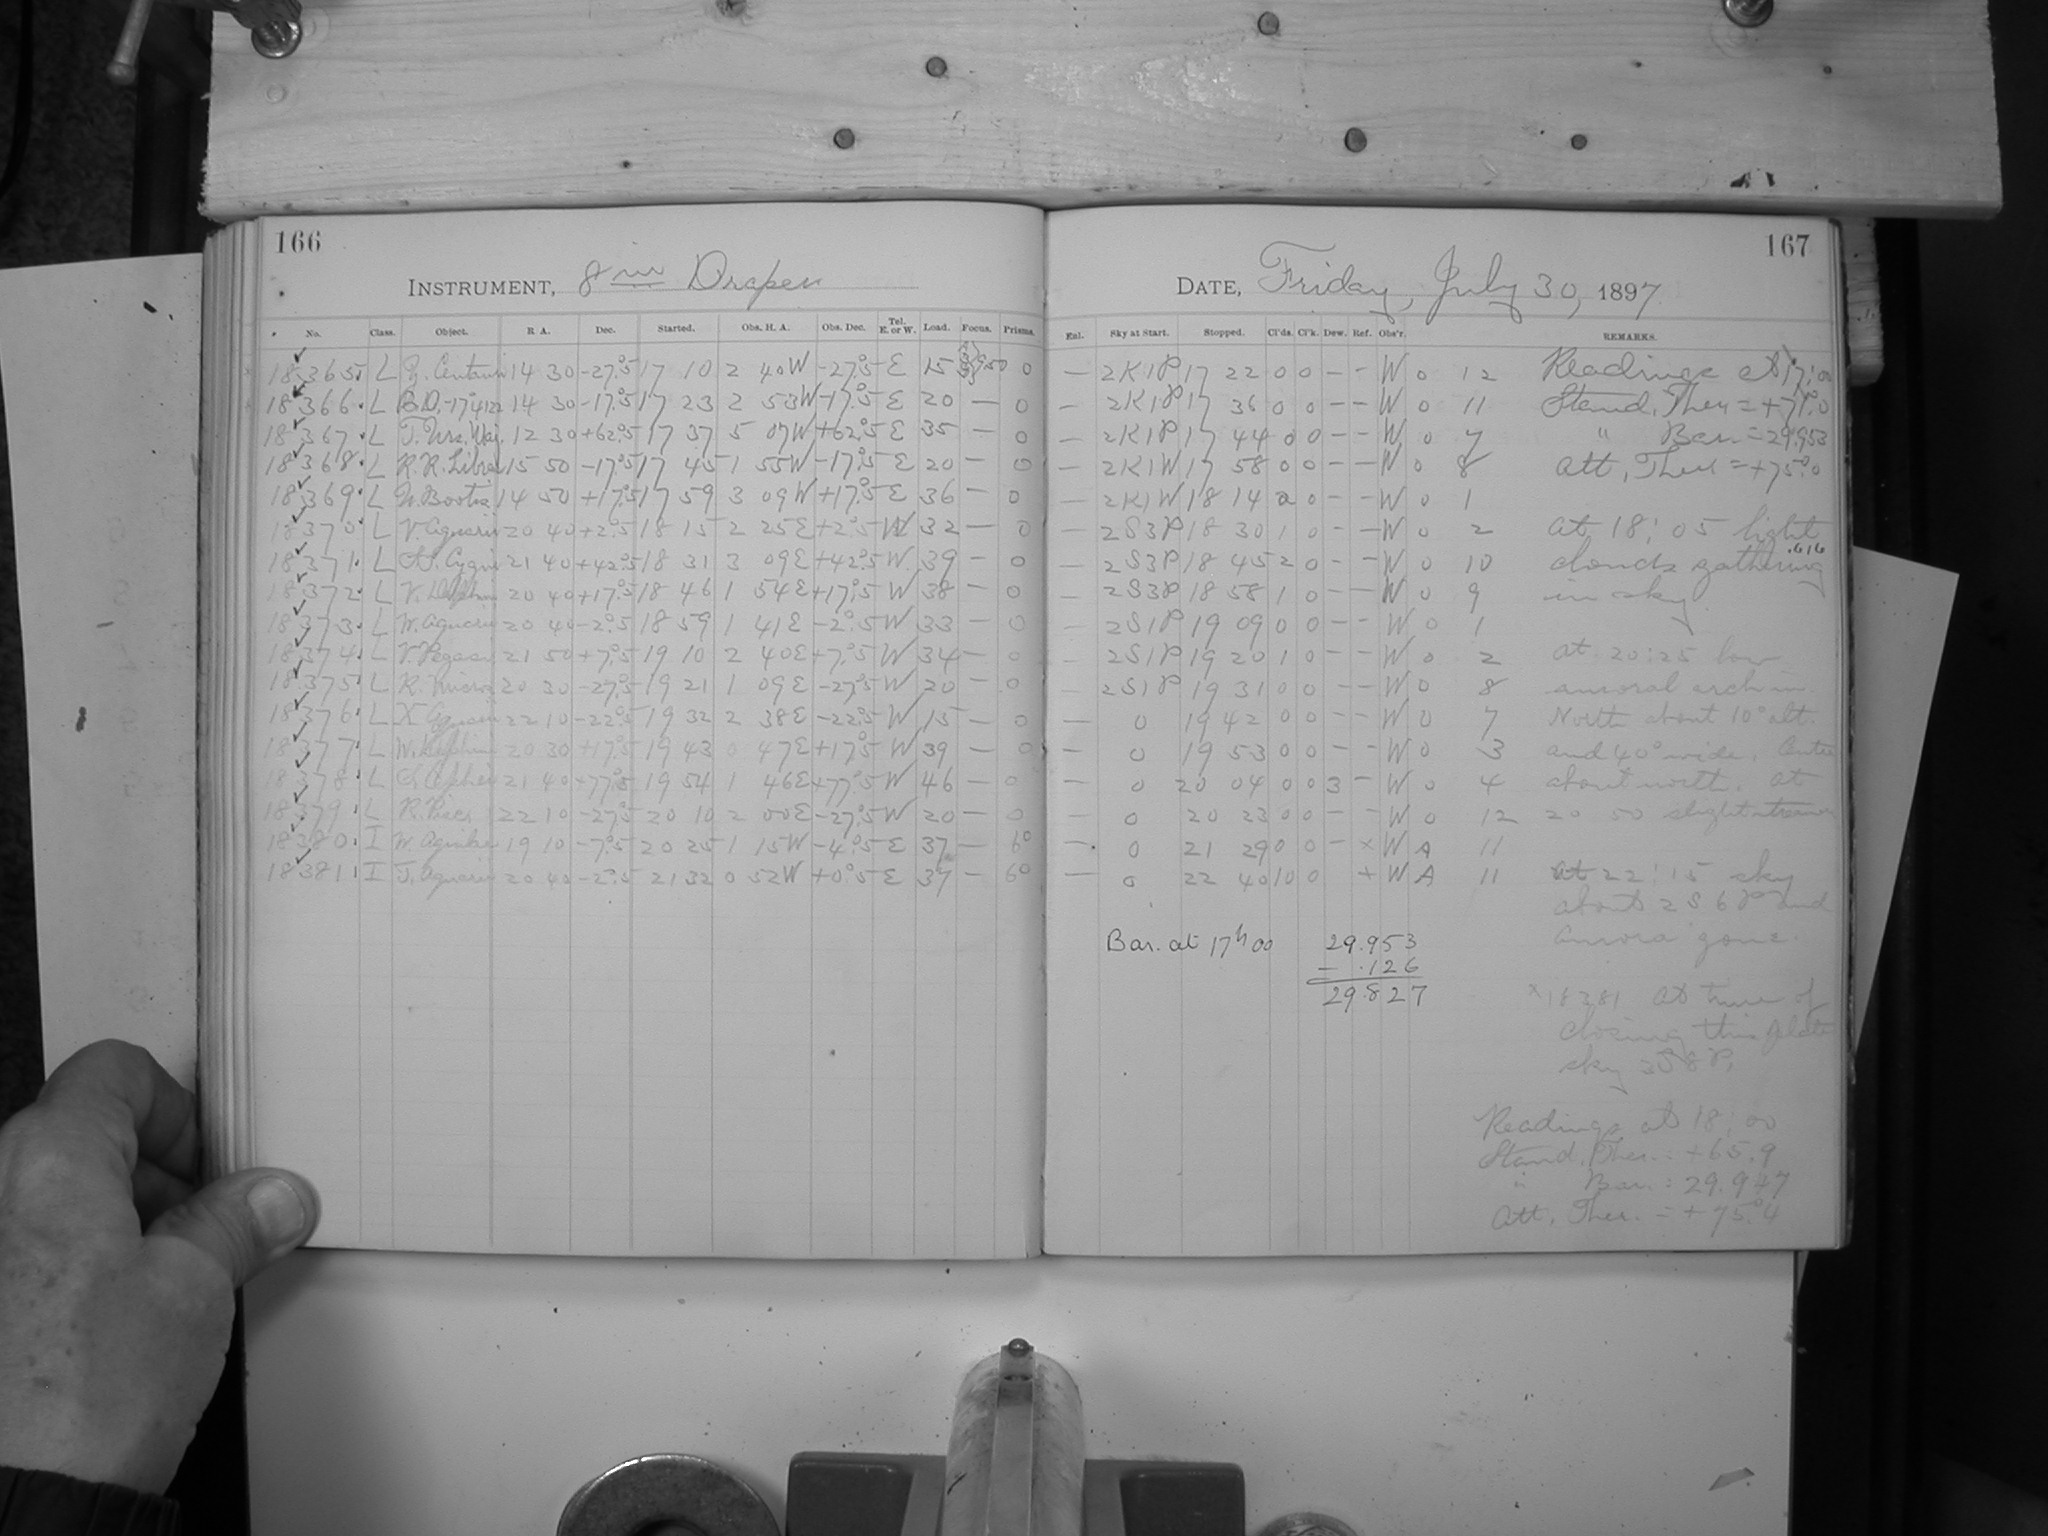 166
INSTRUMENT, 8 in Draper
No. Class. Object. R. A. Dec. Started. Obs. H. A. Obs. Dec. Tel. E. or W. Load. Focus. Prisms.
18365 L 14 30 -27°.5 17 10 2 40W -27°.5 E 15 0
18366 L B.D.-17°4122 14 30 -17°.5 17 23 2 53W -17°.5 E 20 — 0
18367 L T. Urs. Maj. 12 30 +62°.5 17 37 5 07W +62°.5 E 35 — 0
18368 L R.R. Librae 15 50 -17°.5 17 45 1 55W -17°.5 E 20 — 0
18369 L Bootis 14 50 +17°.5 17 59 3 09W +17°.5 E 36 — 0
18370 L V. Aquarii 20 40 +2°.5 18 15 2 25E +2°.5 W 32 — 0
18371 L Cygni 21 40 +42°.5 18 31 3 09E +42°.5 W 39 — 0
18372 L V. Delphini 20 40 +17°.5 18 46 1 54E +17°.5 W 38 — 0
18373 L W. Aquarii 20 40 -2°.5 18 59 1 41E -2°.5 W 33 — 0
18374 L V. Pegasi 21 50 +7°.5 19 10 2 40E +7°.5 W 34 — 0
18375 L R. Micros 20 30 -27°.5 19 21 1 09E -27°.5 W 20 — 0
18376 L X. Aquarii 22 10 -22°.5 19 32 2 38E -22°.5 W 15 — 0
18377 L W. Delphini 20 30 +17°.5 19 43 0 47E +17°.5 W 39 — 0
18378 L S. Cephei 21 40 +77°.5 19 54 1 46E +77°.5 W 46 — 0
18379 L R. Pisc. 22 10 -27°.5 20 10 2 00E -27°.5 W 20 — 0
18380 I W. Aquilae 19 10 -7°.5 20 25 1 15W -4°.5 E 37 — 60
18381 I T. Aquarii 20 40 -2°.5 21 32 0 52W +0°.5 E 37 — 60
167
DATE, Friday, July 30, 1897
Enl. Sky at Start. Stopped. Cl'ds. Cl'k. Dew. Ref. Obs'r. REMARKS.
— 2K1P 17 22 0 0 — — W 0 12 Readings at 17:00
— 2K1P 17 36 0 0 — — W 0 11 Stand. Ther = +71°.0
— 2K1P 17 44 0 0 — — W 0 7 " Bar. = 29.953
— 2K1W 17 58 0 0 — — W 0 8 Att. Ther = +75°.0
— 2K1W 18 14 2 0 — — W 0 1
— 2S3P 18 30 1 0 — — W 0 2 At 18:05 light
— 2S3P 18 45 2 0 — — W 0 10 clouds gathering .616
— 2S3P 18 58 1 0 — — W 0 9 in sky.
— 2S1P 19 09 0 0 — — W 0 1
— 2S1P 19 20 1 0 — — W 0 2 At 20:25 low
— 2S1P 19 31 0 0 — — W 0 8 auroral arch in
— 0 19 42 0 0 — — W 0 7 North about 10° alt.
— 0 19 53 0 0 — — W 0 3 and 40° wide. Center
— 0 20 04 0 0 3 — W 0 4 about north. At
— 0 20 23 0 0 — — W 0 12 20 50 slight
— 0 21 29 0 0 — × W A 11
— 0 22 40 10 0 + W A 11 At 22:15 sky
about 2S6P and
Aurora gone.
Bar. at 17h 00 29.953
— .126
29.827
×18381 At time of
closing this plate
sky 3S8P.
Readings at 18:00
Stand. Ther. = +65.9
" Bar. = 29.947
Att. Ther. = +75°.4